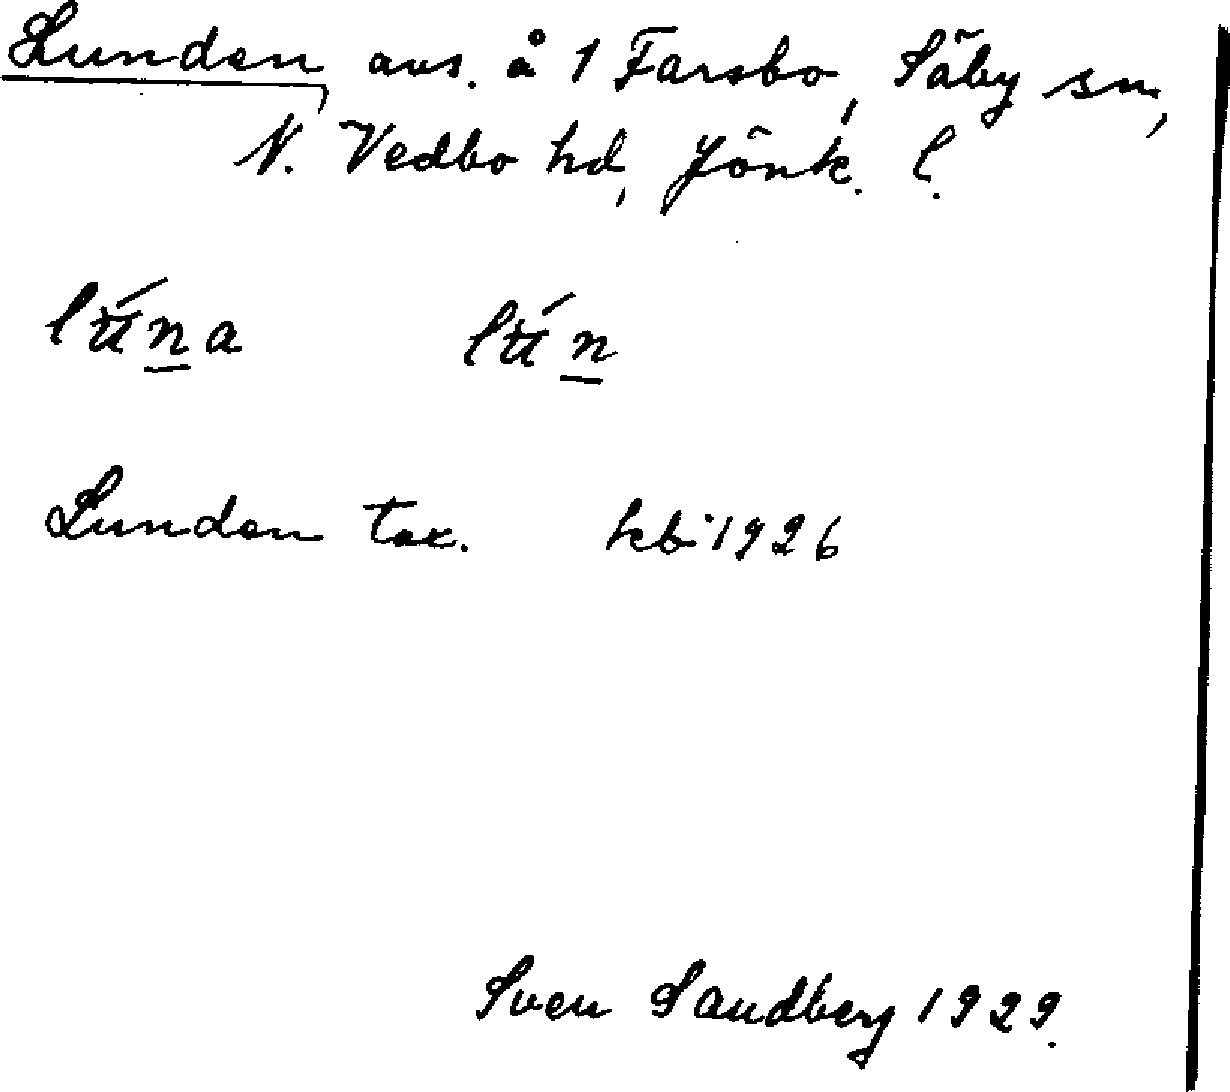 Lunden, avs. å 1 Farsbo, Säby sn,
N. Vedbo hd, Jönk. l.
Lunden tax. kb 1926
Sven Sandberg 1929.